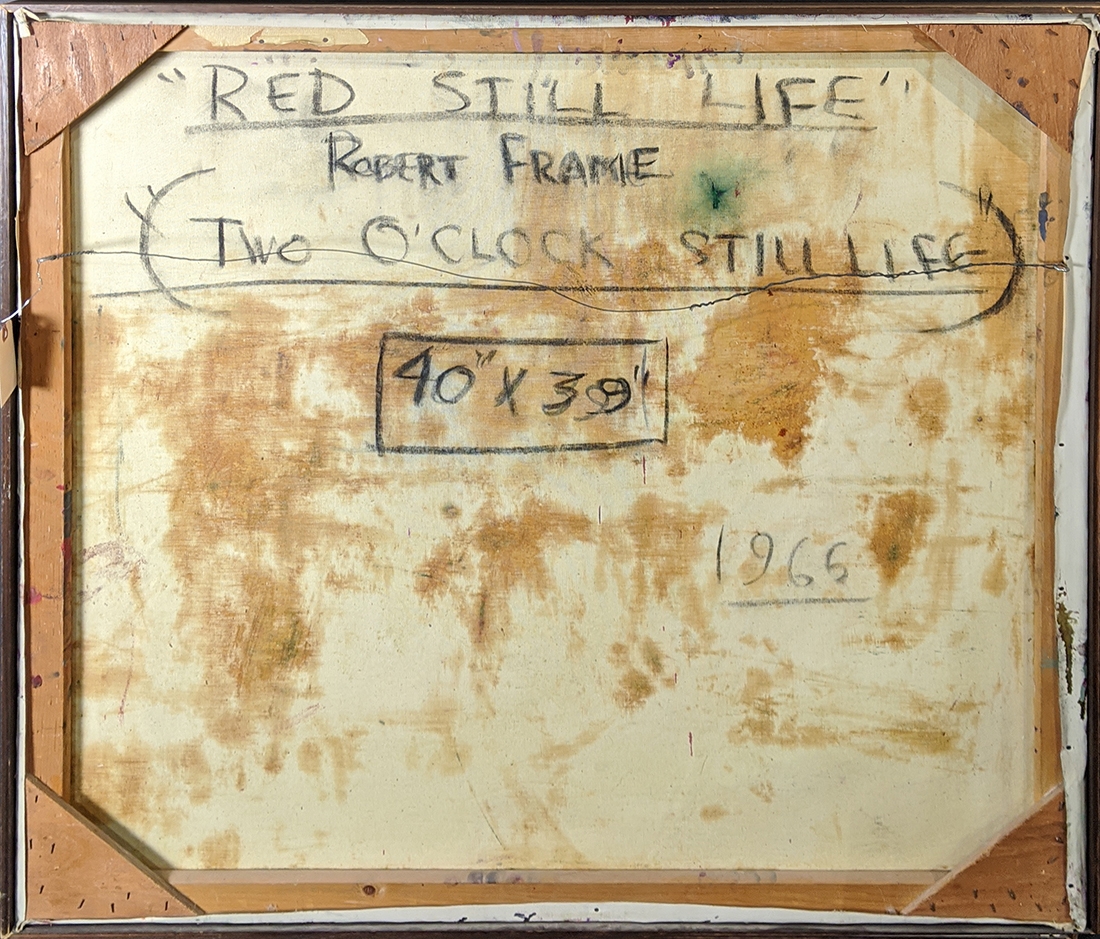 "RED STILL LIFE"
ROBERT FRAME
(TWO O'CLOCK STILL LIFE")
40" X 39"
1966